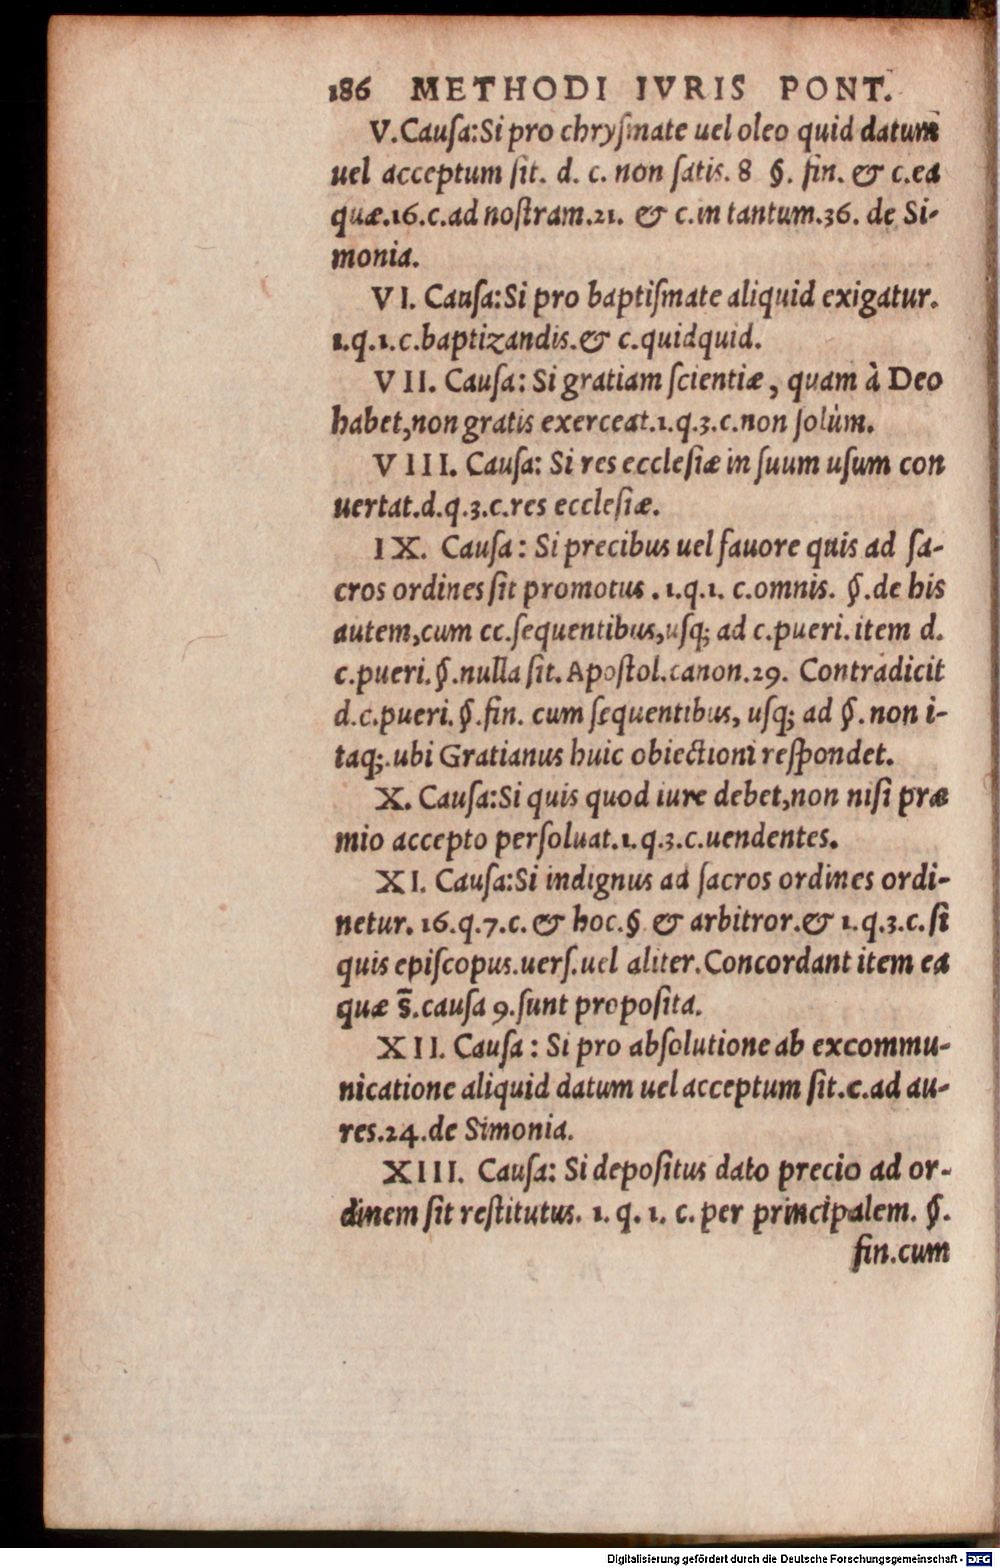 186 METHODI IVRIS PONT.
V. Cauſa: Si pro chryſmate uel oleo quid datum
uel acceptum ſit. d. c. non ſatis. 8 §. fin. & c. ea
quæ. 16. c. ad noſtram. 21. & c. in tantum. 36. de Si-
monia.
VI. Cauſa: Si pro baptiſmate aliquid exigatur.
1. q. 1. c. baptizandis. & c. quidquid.
VII. Cauſa: Si gratiam ſcientiæ, quam à Deo
habet, non gratis exerceat. 1. q. 3. c. non ſolùm.
VIII. Cauſa: Si res eccleſiæ in ſuum uſum con
uertat. d. q. 3. c. res eccleſiæ.
IX. Cauſa: Si precibus uel fauore quis ad ſa-
cros ordines ſit promotus. 1. q. 1. c. omnis. §. de his
autem, cum cc. ſequentibus, uſq; ad c. pueri. item d.
c. pueri. §. nulla ſit. Apoſtol. canon. 29. Contradicit
d. c. pueri. §. fin. cum ſequentibus, uſq; ad §. non i-
taq;. ubi Gratianus huic obiectioni reſpondet.
X. Cauſa: Si quis quod iure debet, non niſi præ
mio accepto perſoluat. 1. q. 3. c. uendentes.
XI. Cauſa: Si indignus ad ſacros ordines ordi-
netur. 16. q. 7. c. & hoc. § & arbitror. & 1. q. 3. c. ſi
quis epiſcopus. uerſ. uel aliter. Concordant item ea
quæ s̄. cauſa 9. ſunt propoſita.
XII. Cauſa: Si pro abſolutione ab excommu-
nicatione aliquid datum uel acceptum ſit. c. ad au-
res. 24. de Simonia.
XIII. Cauſa: Si depoſitus dato precio ad or-
dinem ſit reſtitutus. 1. q. 1. c. per principalem. §.
fin. cum
Digitalisierung gefördert durch die Deutsche Forschungsgemeinschaft - DFG